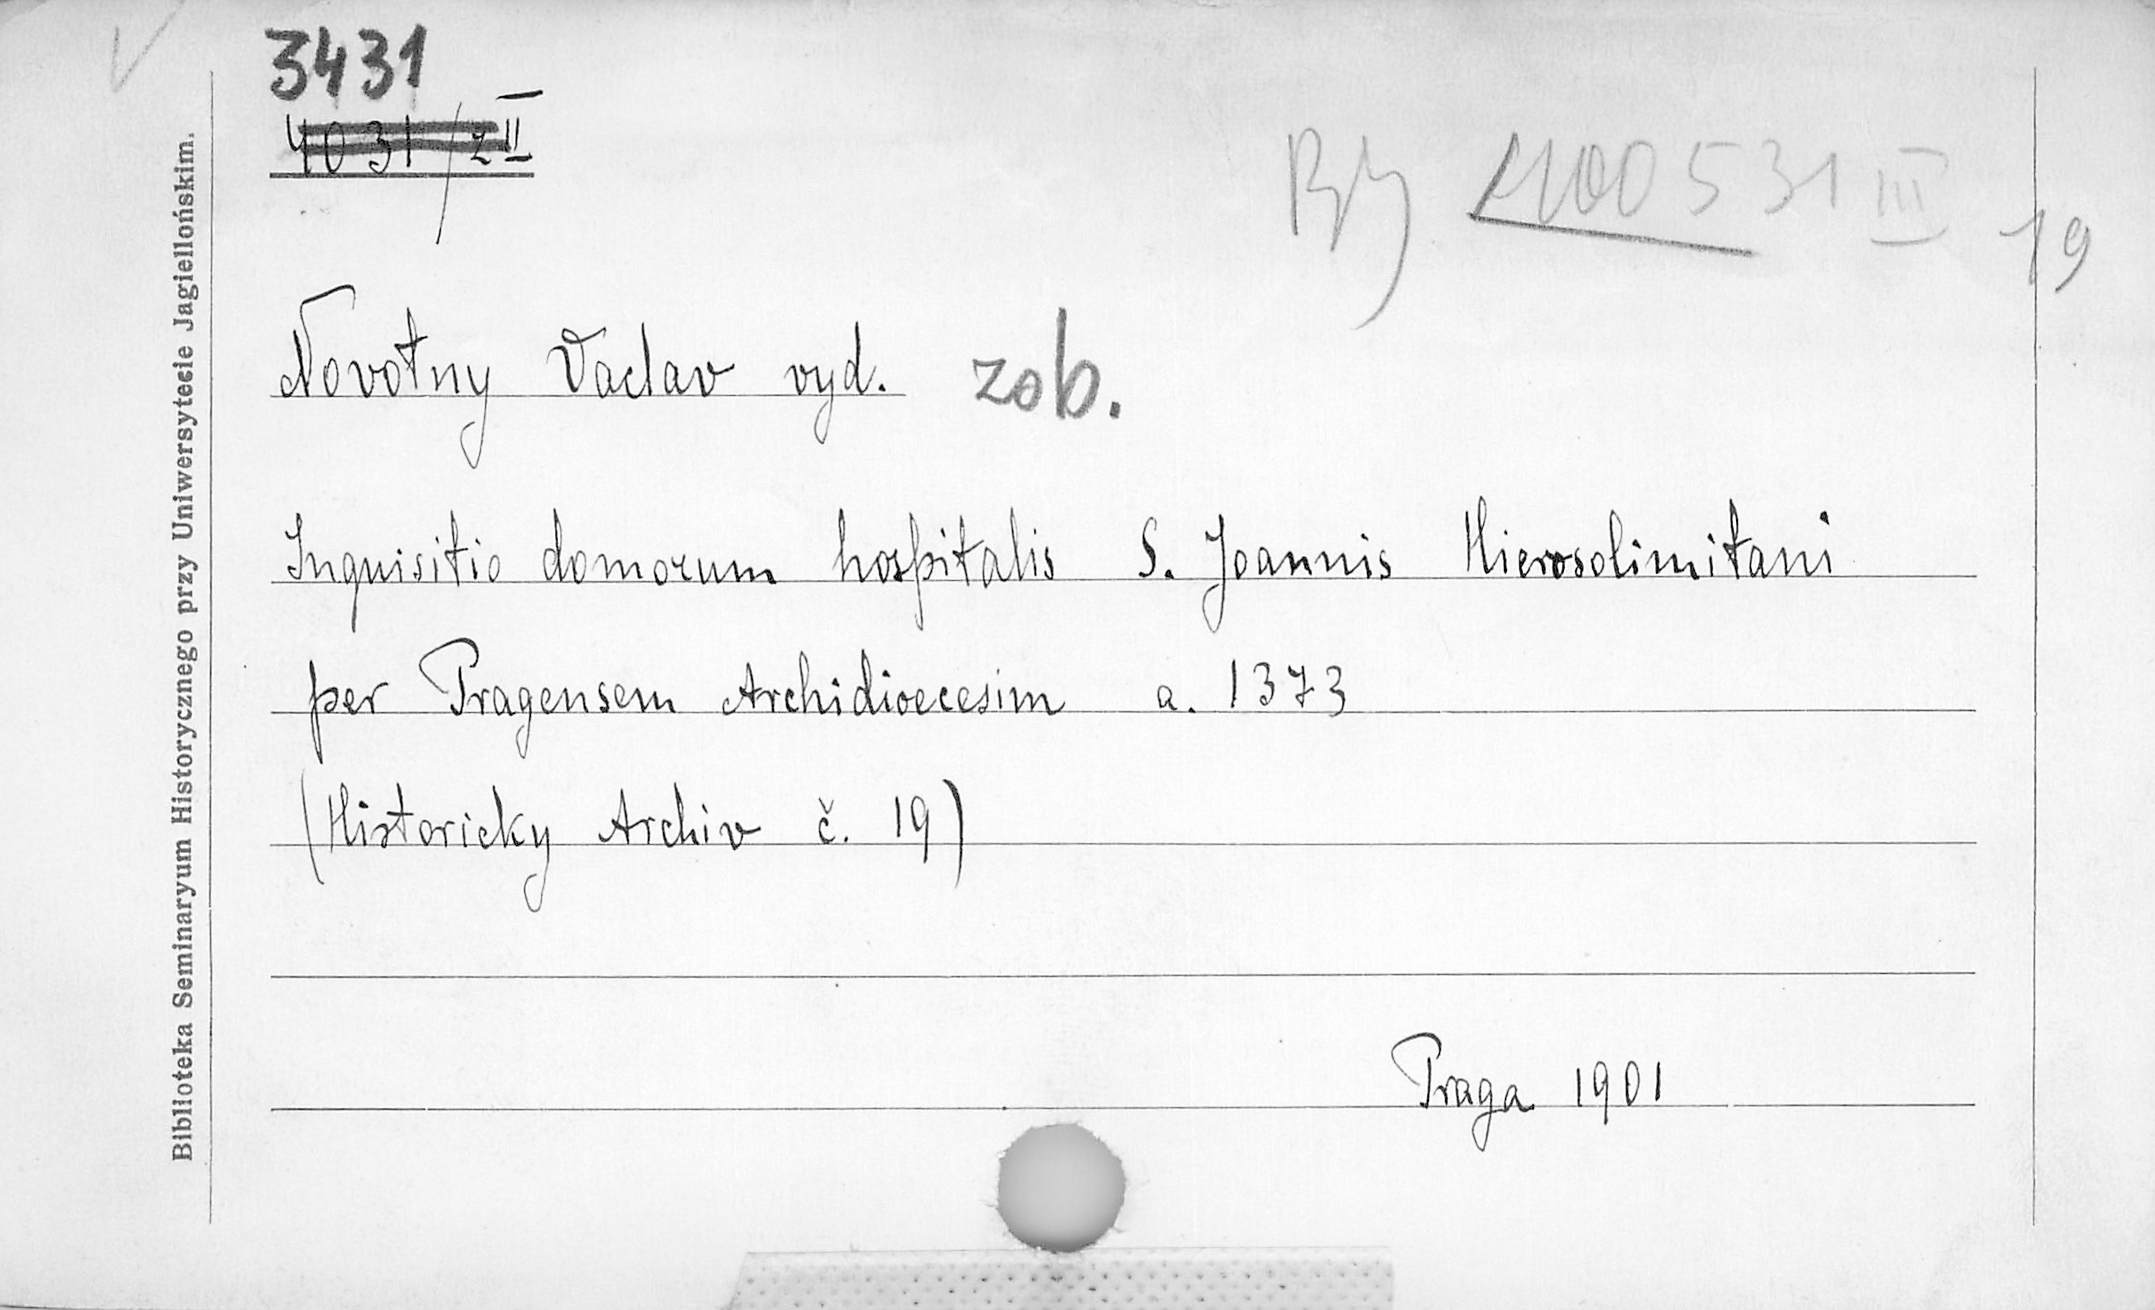 3431
4031/z II
BJ 1100531 III
19
Novotny Vaclav vyd. zob.
Inquisitio domorum hospitalis S. Joannis Hierosolimitani
per Pragensem Archidioecesim a. 1373
(Historicky Archiv č. 19)
Praga 1901
Biblioteka Seminaryum Historycznego przy Uniwersytecie Jagiellońskim.